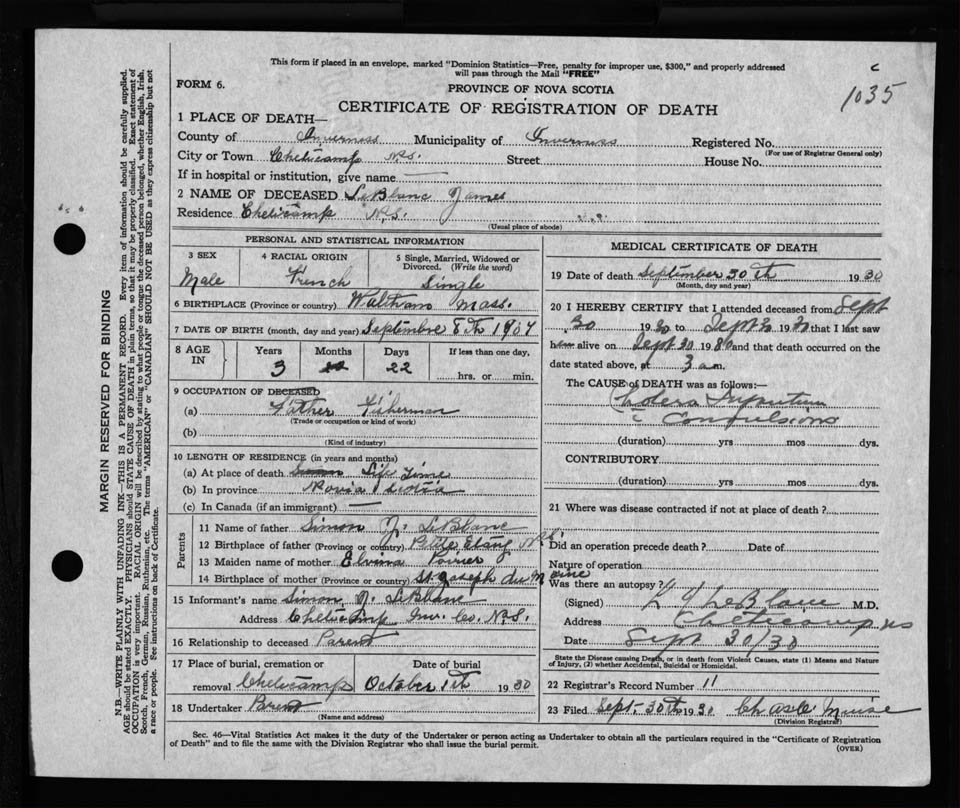 This form if placed in an envelope, marked "Dominion Statistics—Free, penalty for improper use, $300," and properly addressed
will pass through the Mail "FREE"
FORM 6.
PROVINCE OF NOVA SCOTIA
1035
CERTIFICATE OF REGISTRATION OF DEATH
1 PLACE OF DEATH—
County of Inverness Municipality of Inverness Registered No.
(For use of Registrar General only)
City or Town Cheticamp N.S. Street House No.
If in hospital or institution, give name —
2 NAME OF DECEASED LeBlanc James
Residence Cheticamp N.S.
(Usual place of abode)
MARGIN RESERVED FOR BINDING
N.B.—WRITE PLAINLY WITH UNFADING INK—THIS IS A PERMANENT RECORD. Every item of information should be carefully supplied.
AGE should be stated EXACTLY. PHYSICIANS should STATE CAUSE OF DEATH in plain terms, so that it may be properly classified. Exact statement of
OCCUPATION is very important. RACIAL ORIGIN will be described by stating to what people or tongue the deceased person belonged, whether English, Irish,
Scotch, French, German, Russian, Ruthenian, etc. The terms "AMERICAN" or "CANADIAN" SHOULD NOT BE USED as they express citizenship but not
a race or people. See instructions on back of Certificate.
PERSONAL AND STATISTICAL INFORMATION
3 SEX
Male
4 RACIAL ORIGIN
French
5 Single, Married, Widowed or
Divorced. (Write the word)
Single
6 BIRTHPLACE (Province or country) Waltham Mass.
7 DATE OF BIRTH (month, day and year) Septembre 8th 1907
8 AGE IN
Years Months Days If less than one day,
3 22 hrs. or min.
9 OCCUPATION OF DECEASED
(a) Father Fisherman
(Trade or occupation or kind of work)
(b)
(Kind of industry)
10 LENGTH OF RESIDENCE (in years and months)
(a) At place of death Life Time
(b) In province Novia Scotia
(c) In Canada (if an immigrant) —
Parents
11 Name of father Simon J. LeBlanc
12 Birthplace of father (Province or country) Petite Etang N.S.
13 Maiden name of mother Elvina Poirier
14 Birthplace of mother (Province or country) St. Joseph du Moine
15 Informant's name Simon J. LeBlanc
Address Cheticamp Inv. Co. N.S.
16 Relationship to deceased Parent
17 Place of burial, cremation or Date of burial
removal Cheticamp October 1th 1930
18 Undertaker
(Name and address)
MEDICAL CERTIFICATE OF DEATH
19 Date of death September 30th 1930
(Month, day and year)
20 I HEREBY CERTIFY that I attended deceased from Sept
30 1930 to Sept 30 1930 that I last saw
him alive on Sept 30 1930 and that death occurred on the
date stated above, at 3 a.m.
The CAUSE of DEATH was as follows:—
Cholera Infantum
c Convulsions
(duration) yrs mos dys.
CONTRIBUTORY
(duration) yrs mos dys.
21 Where was disease contracted if not at place of death?
Did an operation precede death? Date of
Nature of operation
Was there an autopsy?
(Signed) LeBlanc M.D.
Address Cheticamp NS
Date Sept 30/30
State the Disease causing Death, or in death from Violent Causes, state (1) Means and Nature
of Injury, (2) whether Accidental, Suicidal or Homicidal.
22 Registrar's Record Number 11
23 Filed Sept. 30th 1930
(Division Registrar)
Sec. 46—Vital Statistics Act makes it the duty of the Undertaker or person acting as Undertaker to obtain all the particulars required in the "Certificate of Registration
of Death" and to file the same with the Division Registrar who shall issue the burial permit.
(OVER)